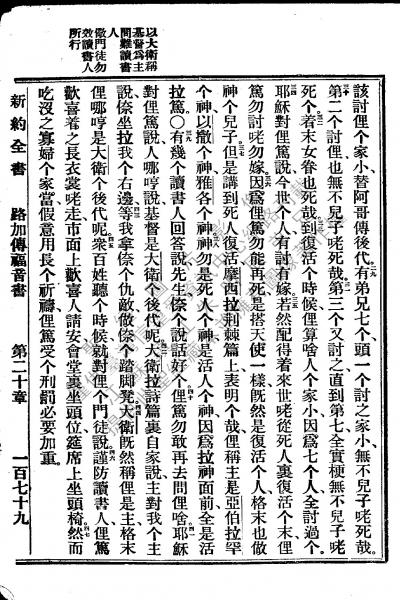 以大衛稱
基督爲主
問難讀書
人
儆門徒勿
效讀書人
所行
該討俚個家小、替阿哥傳後代、有弟兄七個、頭一個討之家小、無不兒子咾死哉。
第二個討俚、也無不兒子咾死哉、第三個又討之、直到第七、全實梗無不兒子咾
死個、着末女眷也死哉、到復活個時候、俚算啥人家小、因爲七個人全討過個。
耶穌對俚篤說、今世個人、有討有嫁、若然配得着來世咾從死人裏復活個末、俚
篤勿討咾勿嫁、因爲俚篤勿能再死、是搭天使一樣、旣然是復活個人、格末也做
神個兒子、但是講到死人復活、摩西拉荆棘篇上表明個哉、俚稱主是亞伯拉罕
個神、以撒個神、雅各個神、神勿是死人個神、是活人個神、因爲拉神面前全是活
拉篤。○有幾個讀書人回答說、先生、倷個說話好個、俚篤勿敢再去問俚啥。耶穌
對俚篤說、人哪哼說基督是大衛個後代呢、大衛拉詩篇裏自家說、主對我個主
說、倷坐拉我個右邊、等我拿倷個仇敵、做倷個踏脚凳、大衛旣然稱俚是主、格末
俚哪哼是大衛個後代呢、衆百姓聽個時候、就對俚個門徒說、謹防讀書人、俚篤
歡喜着之長衣裳咾走、市面上歡喜人請安、會堂裏坐頭位、筵席上坐頭椅、然而
吃沒之寡婦個家當、假意用長個祈禱、俚篤受個刑罰、必要加重。
新約全書　路加傳福音書　第二十章　一百七十九